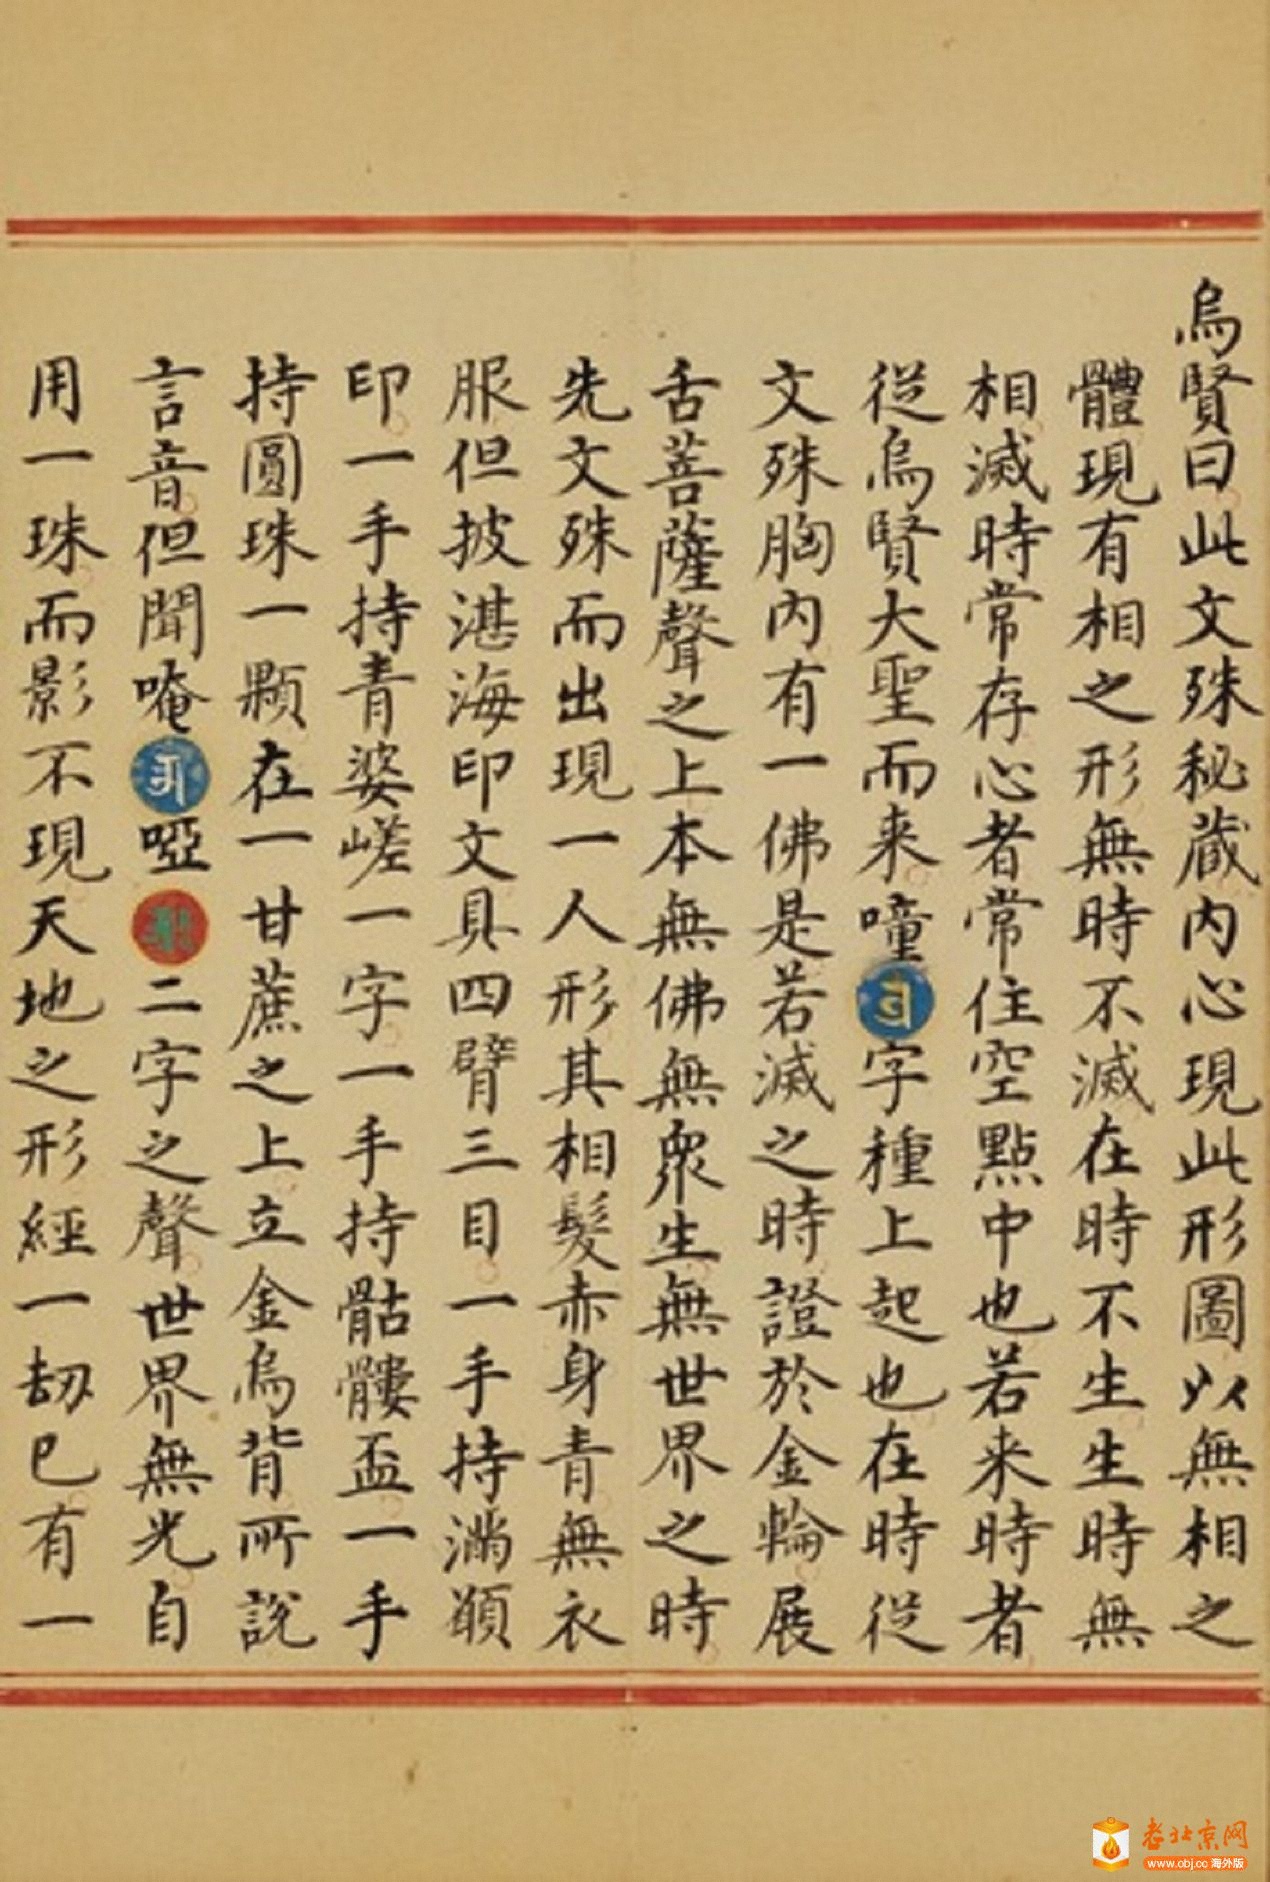 烏賢曰此文殊秘蔵内心現此形圖以無相之
體現有相之形無時不滅在時不生生時無
相滅時常存心者常住空點中也若来時者
從烏賢大聖而来㘒字種上起也在時從
文殊胸内有一佛是若滅之時證於金輪展
舌菩薩聲之上本無佛無衆生無世界之時
先文殊而出現一人形其相髮赤身青無衣
服但披湛海印文具四臂三目一手持滿顖
印一手持青婆嵯一字一手持骷髏盃一手
持圓珠一顆在一甘蔗之上立金烏背所説
言音但聞唵啞二字之聲世界無光自
用一珠而影不現天地之形經一劫已有一
老北京网
www.obj.cc 海外版